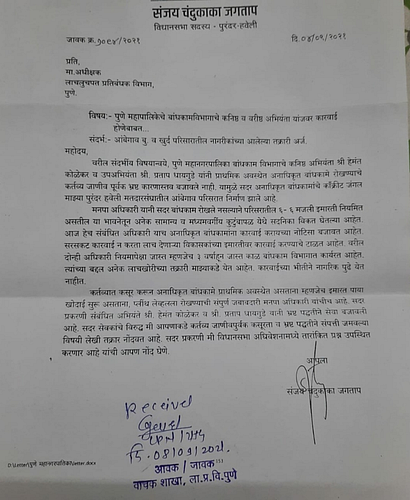 संजय चंदुकाका जगताप
विधानसभा सदस्य - पुरंदर-हवेली
जावक क्र. १०९४/२०२१
दि. ०४/०९/२०२१
प्रति,
मा.अधीक्षक
लाचलुचपत प्रतिबंधक विभाग,
पुणे.
विषय:- पुणे महापालिकेचे बांधकामविभागाचे कनिष्ठ व वरीष्ठ अभियंता यांजवर कारवाई
होणेबाबत...
संदर्भ:- आंबेगाव बु. व खुर्द परिसारातील नागरीकांच्या आलेल्या तक्रारी अर्ज.
महोदय,
वरील संदर्भीय विषयान्वये, पुणे महानगरपालिका बांधकाम विभागाचे कनिष्ठ अभियंता श्री हेमंत
कोळेकर व उपअभियंता श्री. प्रताप धायगुडे यांनी प्राथमिक अवस्थेत अनाधिकृत बांधकामाचे रोखण्याचे
कर्तव्य जाणीव पूर्वक भ्रष्ट कारणास्तव बजावले नाही. यामुळे सदर अनाधिकृत बांधकामांचे काँक्रीट जंगल
माझ्या पुरंदर हवेली मतदारसंघातील आंबेगाव परिसरात निर्माण झाले आहे.
मनपा अधिकारी यांनी सदर बांधकाम रोखले नसल्याने परिसरातील ६-६ मजली इमारती नियमित
असतील या भावनेतून अनेक सामान्य व मध्यमवर्गीय कुटुंबापळ येथे सदनिका विकत घेतल्या आहेत.
आज हेच संबंधित अधिकारी याच अनाधिकृत बांधकामांना कारवाई करावयाच्या नोटिसा बजावत आहेत.
सरसकट कारवाई न करता लाच देणाऱ्या विकासकांच्या इमारतीवर कारवाई करण्याचे टाळत आहेत. वरील
दोन्ही अधिकारी नियमापेक्षा जास्त म्हणजेच ३ वर्षाहून जास्त काळ बांधकाम विभागात कार्यरत आहेत.
त्यांच्या बद्दल अनेक लाचखोरीच्या तक्रारी माझ्याकडे येत आहेत. कारवाईच्या भीतीने नागरिक पुढे येत
नाहीत.
कर्तव्यात कसूर करून अनाधिकृत बांधकामे प्राथमिक अवस्थेत असताना म्हणजेच इमारत पाया
खोदाई सुरू असताना, प्लींथ लेव्हलला रोखण्याची संपुर्ण जबाबदारी मनपा अधिकारी यांचीच आहे. सदर
प्रकरणी संबंधित अभियंते श्री. हेमंत कोळेकर व श्री. प्रताप धायगुडे यांनी भ्रष्ट पद्धतीने सेवा बजावली
आहे. सदर सेवकाचे विरुद्ध मी आपणाकडे कर्तव्य जाणीवपुर्वक कसूरता व भ्रष्ट पद्धतीने संपत्ती जमवल्या
विषयी लेखी तक्रार नोंदवत आहे. सदर प्रकरणी मी विधानसभा अधिवेशनामध्ये तारांकित प्रश्न उपस्थित
करणार आहे यांची आपण नोंद घेणे.
आपला
संजय चंदुकाका जगताप
Received
दि. ०8/०9/२०२1.
आवक / जावक
वाचक शाखा, ला.प्र.वि.पुणे
D:\Letter\पुणे महानगरपालिका\letter.docx